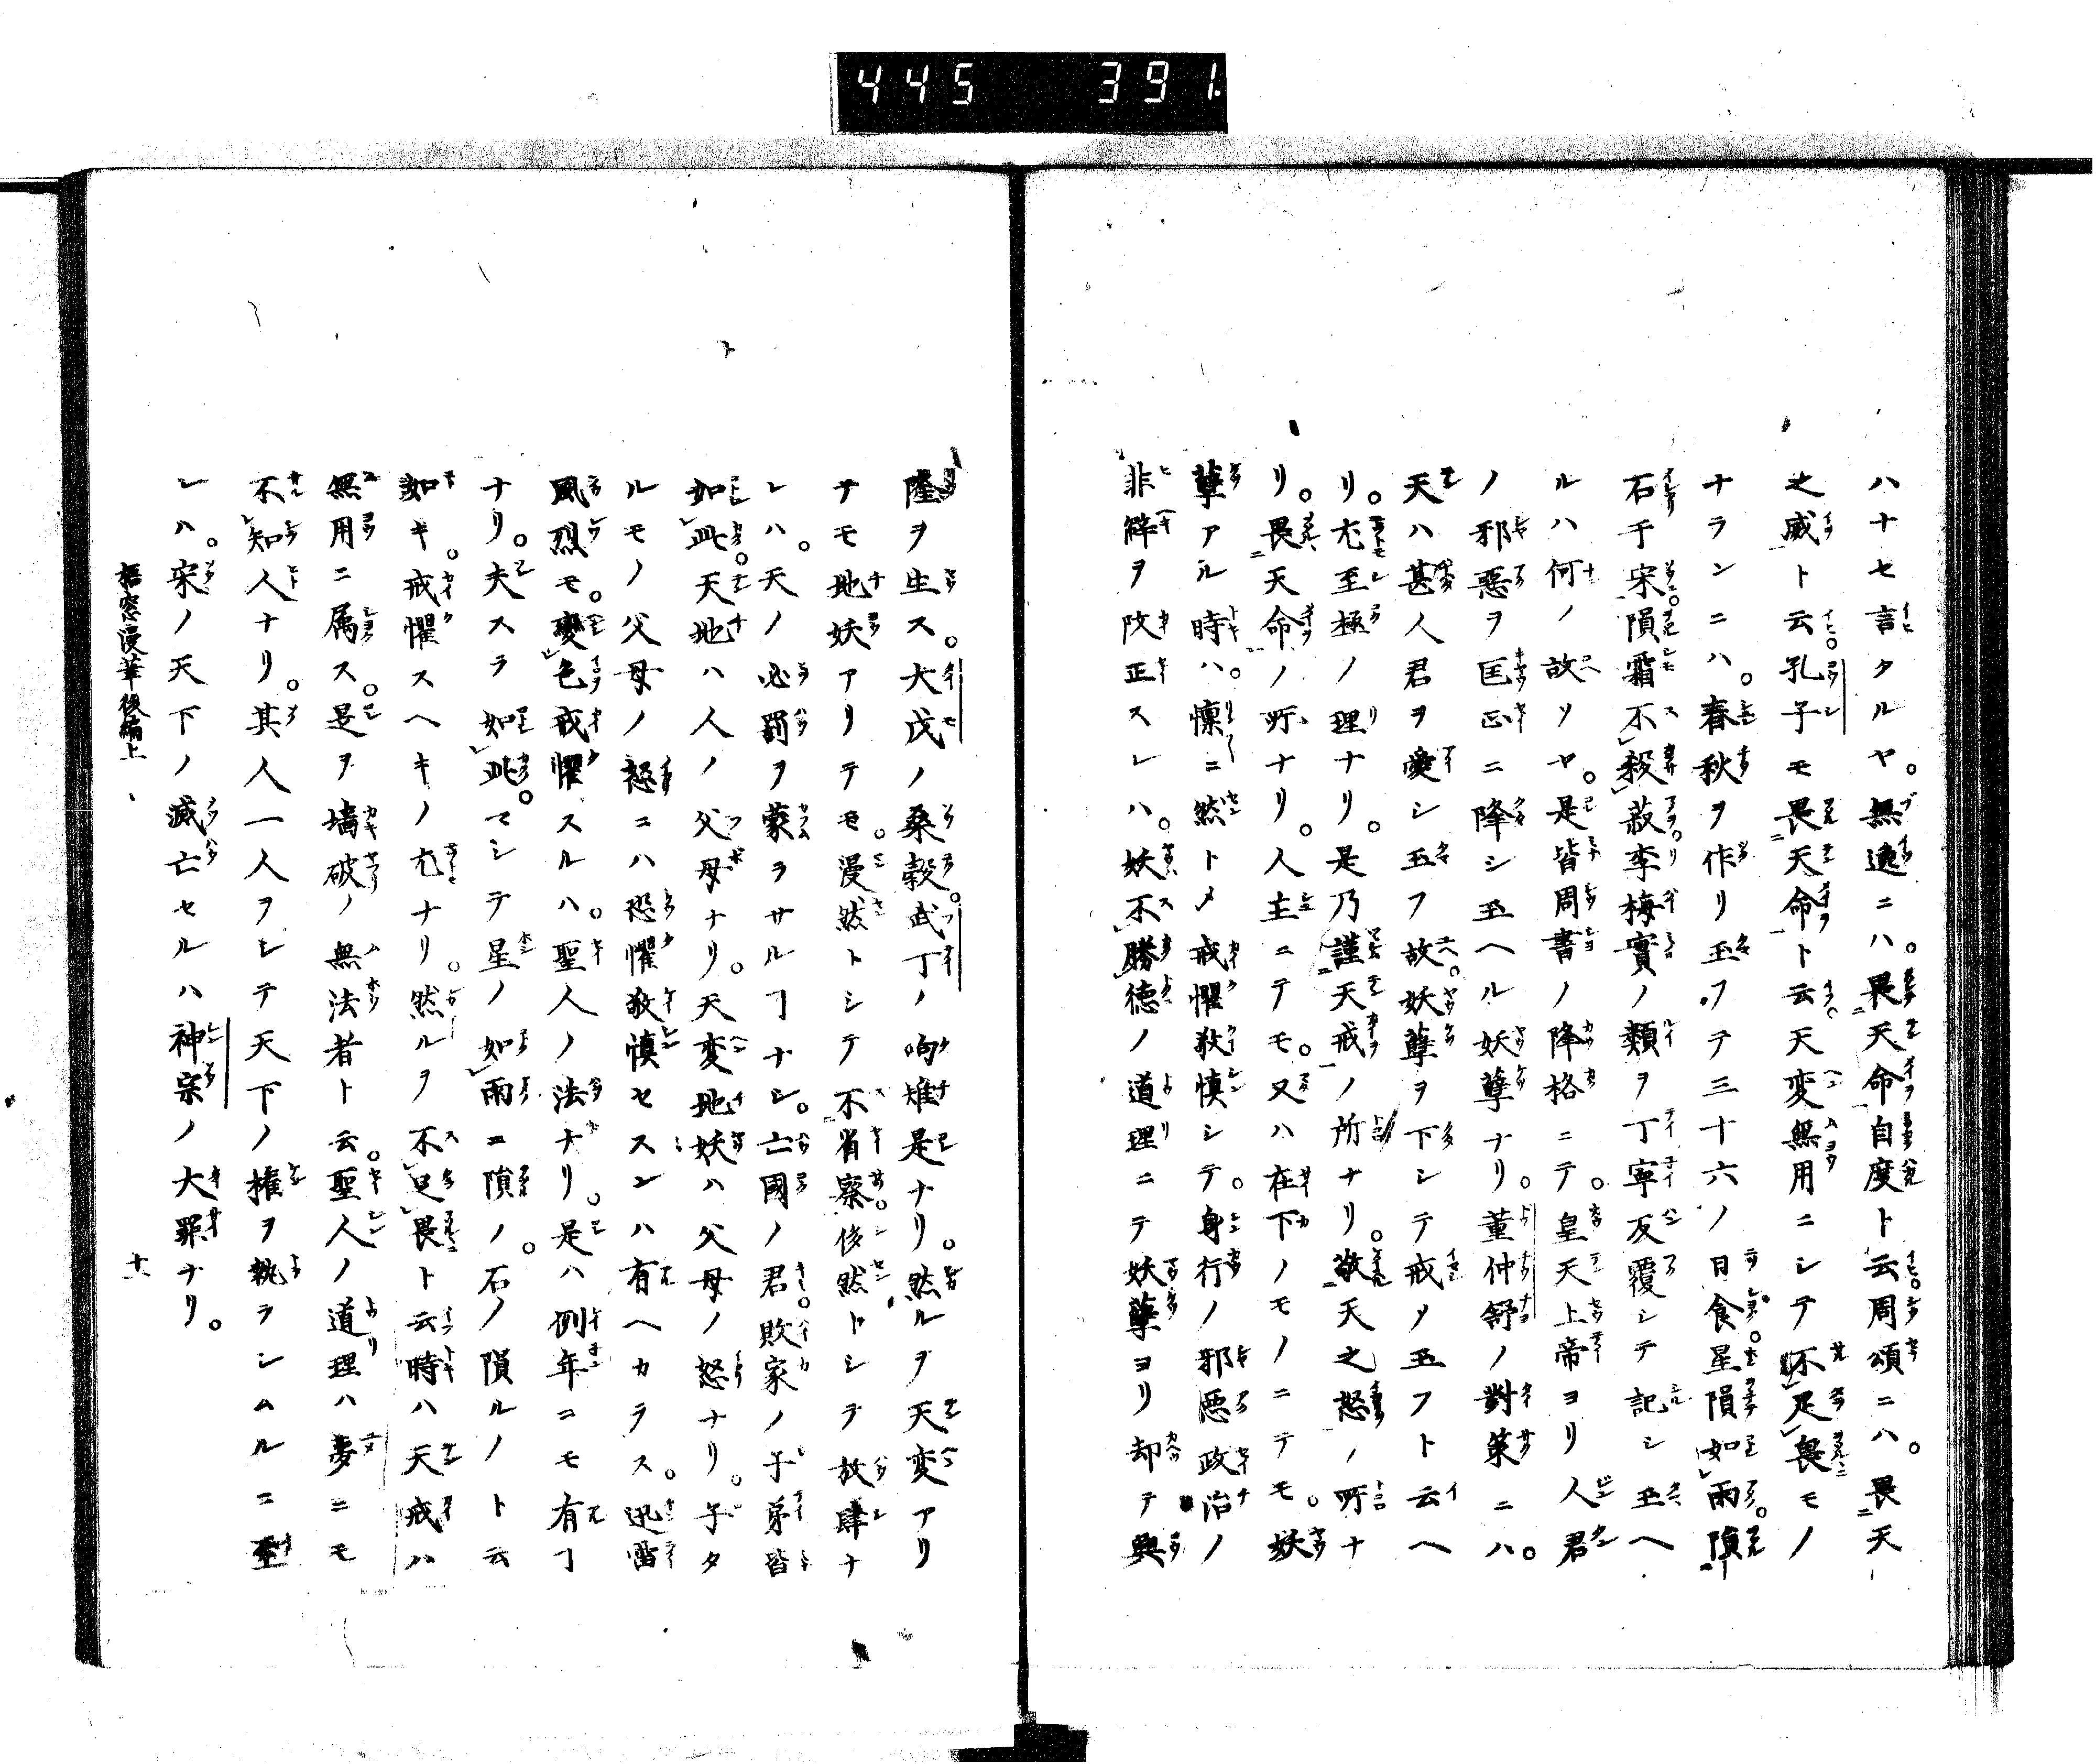 445 391.
ハナセ言タルヤ。無逸ニハ。畏天命自度ト云。周頌ニハ。畏天
之威ト云。孔子モ畏天命ト云。天変無用ニシテ不足畏モノ
ナランニハ。春秋ヲ作リ玉フテ三十六ノ日食。星隕如雨。隕
石于宋。隕霜不殺菽。李梅實ノ類ヲ丁寧反覆シテ記シ玉ヘ
ルハ何ノ故ソヤ。是皆周書ノ降格ニテ。皇天上帝ヨリ人君
ノ邪惡ヲ匡正ニ降シ玉ヘル妖孽ナリ。董仲舒ノ對策ニハ。
天ハ甚人君ヲ愛シ玉フ故。妖孽ヲ下シテ戒メ玉フト云ヘ
リ。尤至極ノ理ナリ。是乃謹天戒ノ所ナリ。敬天之怒ノ所ナ
リ。畏天命ノ所ナリ。人主ニテモ。又ハ在下ノモノニテモ。妖
孽アル時ハ。懍ニ然トメ戒懼敬慎シテ。身行ノ邪惡政治ノ
非僻ヲ改正スレハ。妖不勝德ノ道理ニテ妖孽ヨリ却テ興
隆ヲ生ス。大戊ノ桑穀。武丁ノ雊雉是ナリ。然ルヲ天変アリ
テモ地妖アリテモ。漫然トシテ不省察。侈然トシテ放肆ナ
レハ。天ノ必罰ヲ蒙ヲサルヿナシ。亡國ノ君。敗家ノ子弟皆
如此。天地ハ人ノ父母ナリ。天変地妖ハ父母ノ怒ナリ。子タ
ルモノ父母ノ怒ニハ恐懼敬慎セスンハ有ヘカラス。迅雷
風烈モ。變色戒懼スルハ。聖人ノ法ナリ。是ハ例年ニモ有ヿ
ナリ。夫スラ如此。マシテ星ノ如雨ニ隕ノ。石ノ隕ルノト云
如キ。戒懼スヘキノ尤ナリ。然ルヲ不足畏ト云時ハ天戒ハ
無用ニ属ス。是ヲ墻破ノ無法者ト云。聖人ノ道理ハ夢ニモ
不知人ナリ。其人一人ヲシテ天下ノ權ヲ執ラシムルニ至
レハ。宋ノ天下ノ滅亡セルハ神宗ノ大罪ナリ。
梧窓漫筆後編上 十一